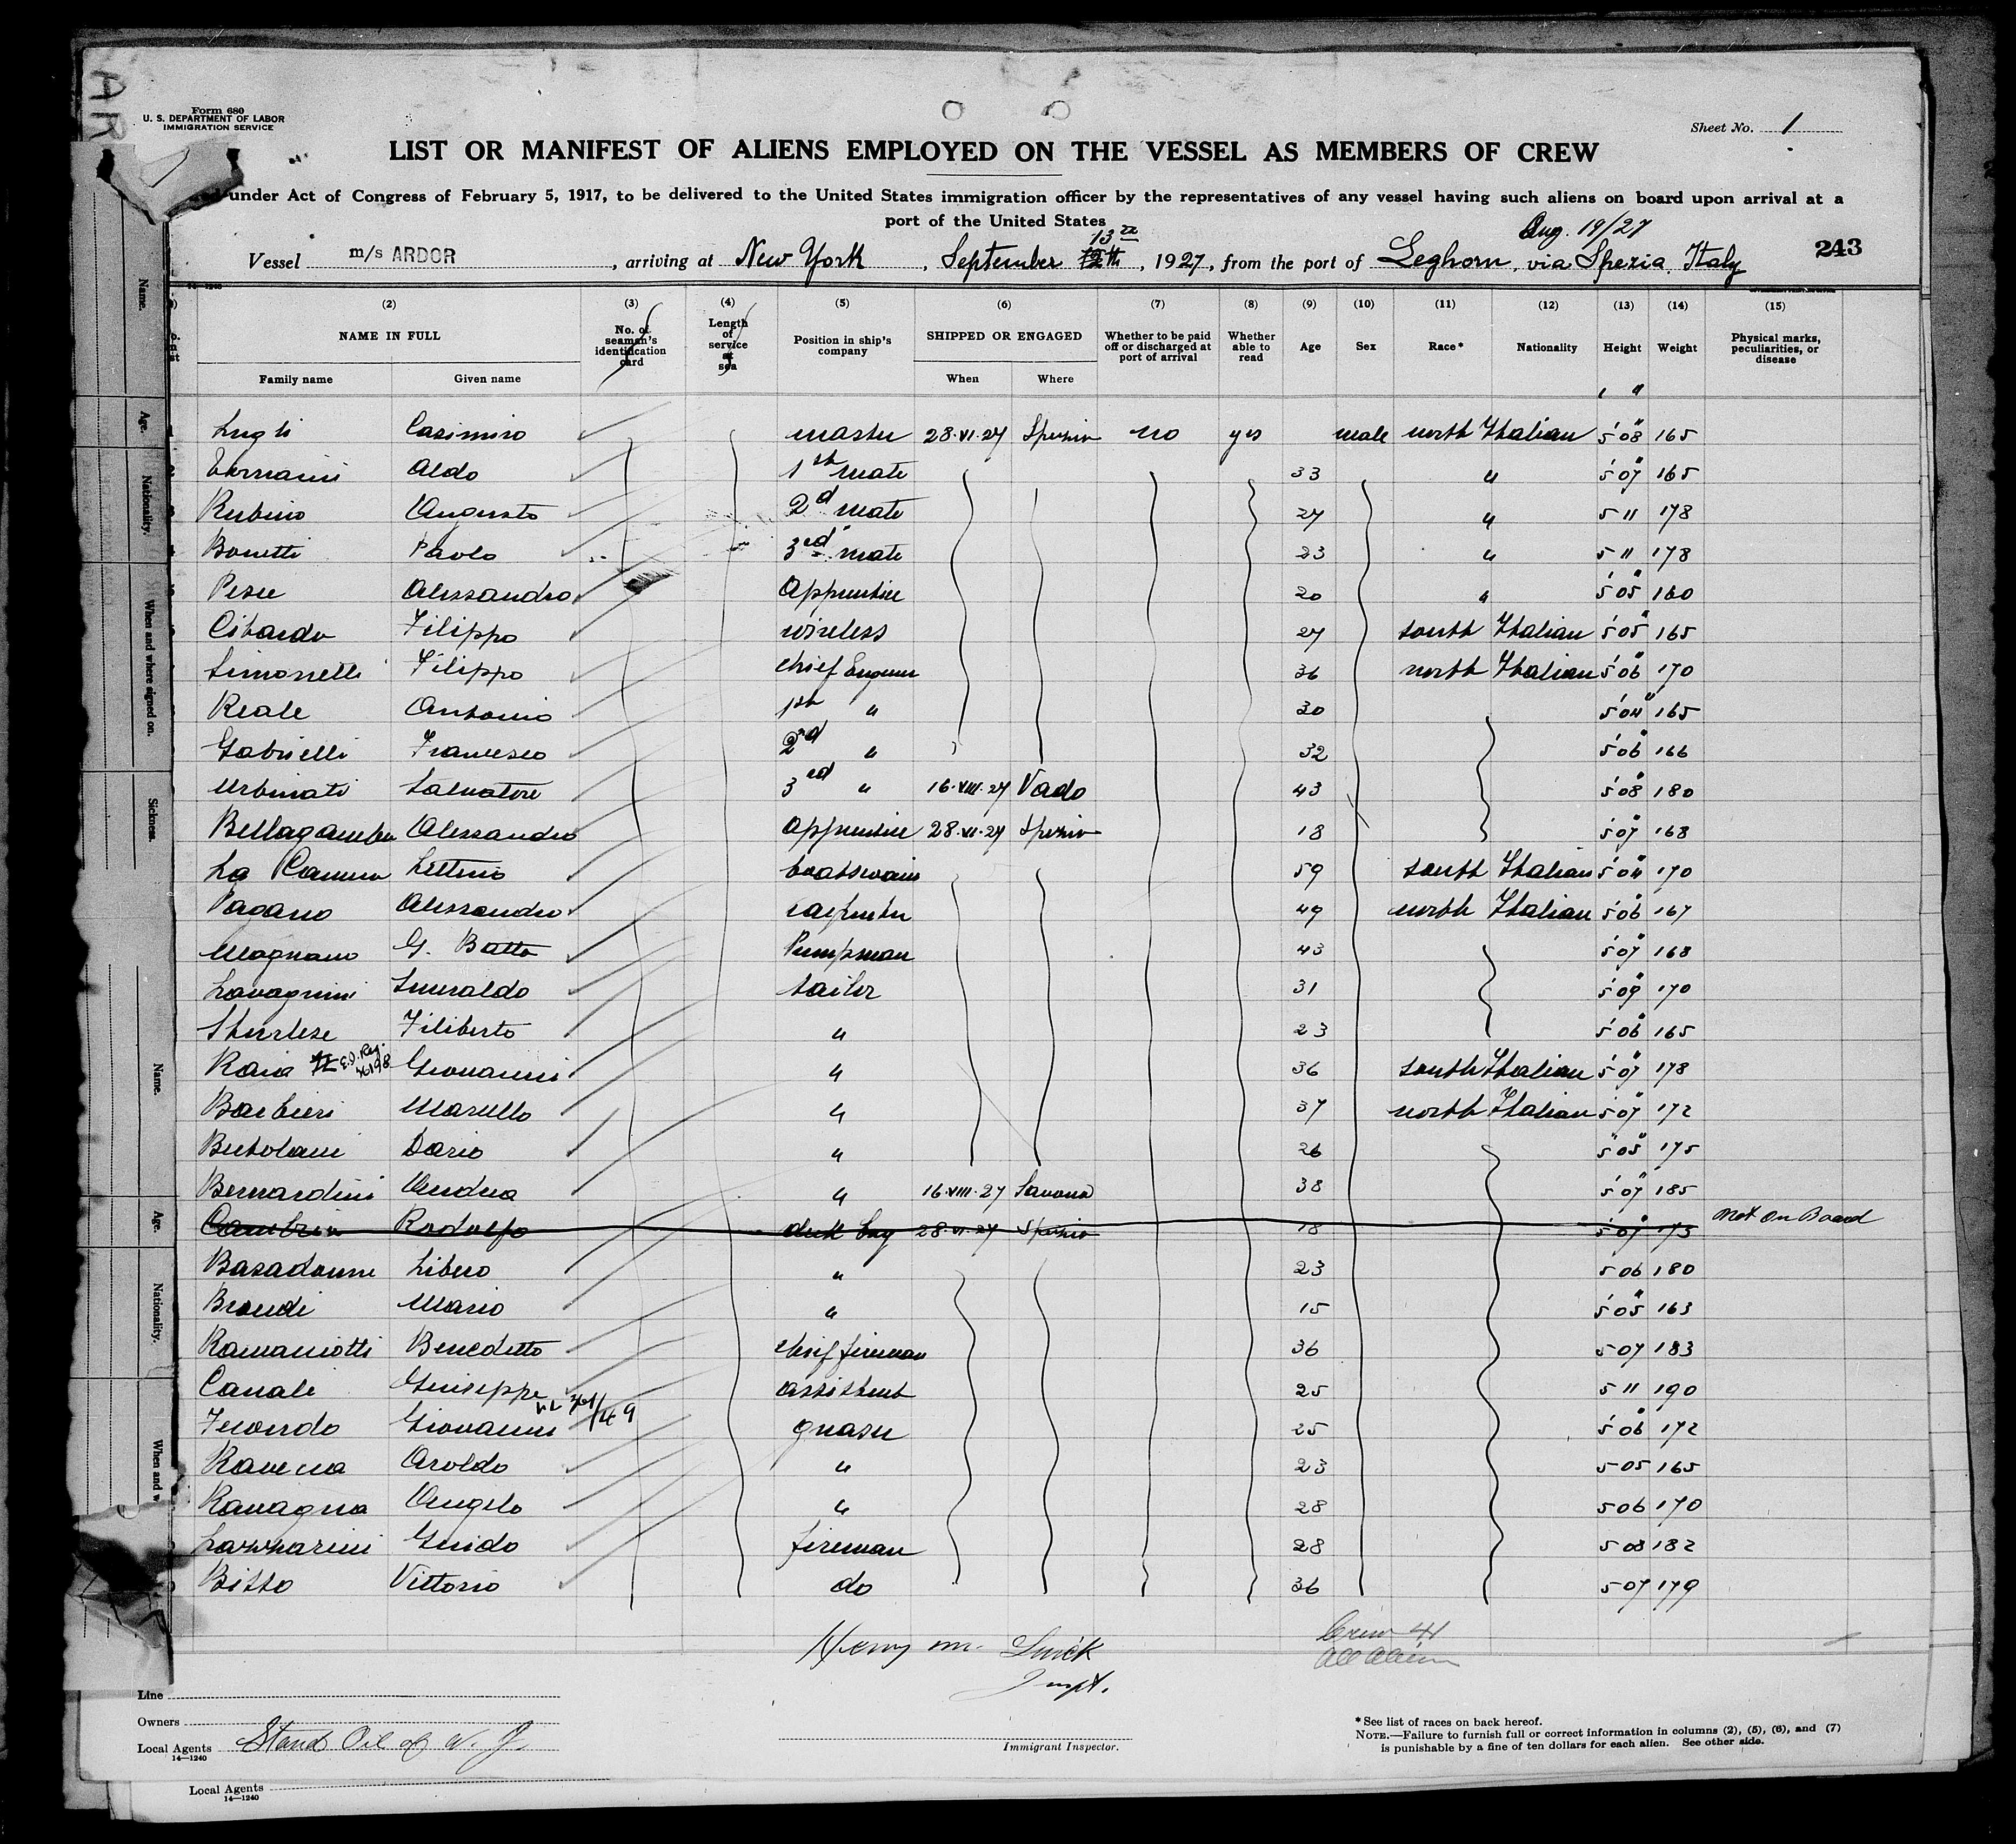 AR
Form 680
U. S. DEPARTMENT OF LABOR
IMMIGRATION SERVICE
Sheet No. 1
LIST OR MANIFEST OF ALIENS EMPLOYED ON THE VESSEL AS MEMBERS OF CREW
under Act of Congress of February 5, 1917, to be delivered to the United States immigration officer by the representatives of any vessel having such aliens on board upon arrival at a
port of the United States
Aug. 19/27
13th
Vessel m/s ARDOR, arriving at New York, September 12th, 1927, from the port of Leghorn, via Spezia, Italy 243
(2) (3) (4) (5) (6) (7) (8) (9) (10) (11) (12) (13) (14) (15)
NAME IN FULL No. of seaman's identification card Length of service at sea Position in ship's company SHIPPED OR ENGAGED Whether to be paid off or discharged at port of arrival Whether able to read Age Sex Race* Nationality Height Weight Physical marks, peculiarities, or disease
Family name Given name When Where
Lugli Casimiro master 28·VI·27 Spezia no yes male north Italian 5'08" 165
Aldo 1st mate 33 " 5'07" 165
Rubino Augusto 2d mate 27 " 5 11 178
Bonetti Paolo 3rd mate 23 " 5 11 178
Pesce Alessandro Apprentice 20 " 5'05" 160
Filippo wireless 27 south Italian 5'05" 165
Simonetti Filippo chief Engineer 36 north Italian 5'06" 170
Reale Antonio 1st " 30 5'04" 165
Gabrielli Francesco 2nd " 32 5'06" 166
Urbinati Salvatore 3rd " 16·VIII·27 Vado 43 5'08" 180
Bellagamba Alessandro apprentice 28·VI·27 Spezia 18 5'07" 168
La Camera Letterio boatswain 59 south Italian 5'04" 170
Pagano Alessandro carpenter 49 north Italian 5'06" 167
Magnano G. Batta Pumpman 43 5'07" 168
Lavagnini Smeraldo sailor 31 5'09" 170
Sturlese Filiberto " 23 5'06" 165
Raia Giovanni " 36 south Italian 5'07" 178
Barbieri Marcello " 37 north Italian 5'07" 172
Bertolani Dario " 26 5'05" 175
Bernardini Andrea " 16·VIII·27 Savona 38 5'07" 185
Cambria Rodolfo deck boy 28·VI·27 Spezia 18 5'07" 173 Not on Board
Basadonne Libero " 23 5 06 180
Brondi Mario " 15 5'05" 163
Ramaciotti Benedetto chief fireman 36 5 07 183
Canale Giuseppe assistent 25 5 11 190
Fecondo Giovanni greaser 25 5'06" 172
Ravenna Aroldo " 23 5 05 165
Ravagna Angelo " 28 5 06 170
Lazzarini Guido fireman 28 5 08 182
Bisso Vittorio do 36 5 07 179
Henry M.
Inspt.
Crew 41
All Alien
Line
Owners
Local Agents Stand Oil of N. J.
14—1240
Immigrant Inspector.
*See list of races on back hereof.
NOTE.—Failure to furnish full or correct information in columns (2), (5), (6), and (7)
is punishable by a fine of ten dollars for each alien. See other side.
Local Agents
14—1240
Name.
Age.
Nationality.
When and where signed on.
Sickness.
Name.
Age.
Nationality.
When and w